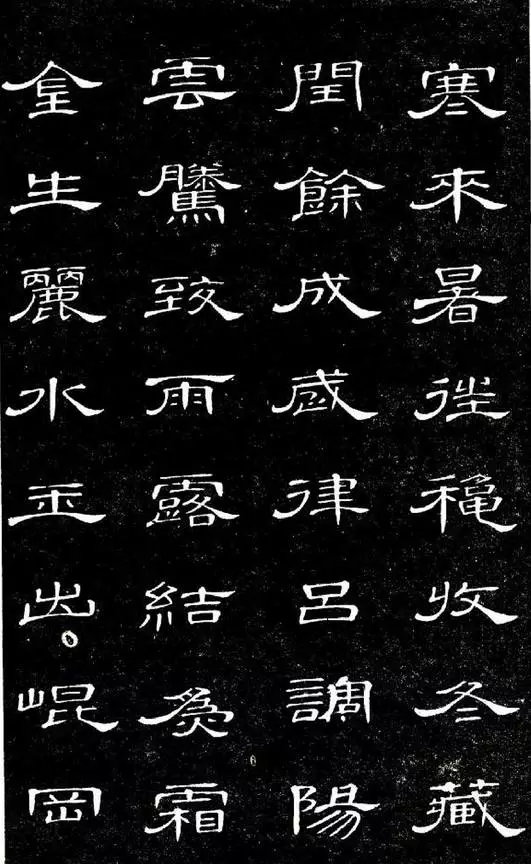 寒來暑往穐收冬藏
閏餘成歲律呂調陽
雲騰致雨露結為霜
金生麗水玉出崐岡